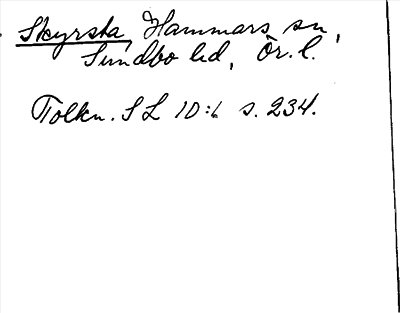 Skyrsta Hammars sn,
Sundbo hd, Ör. l.
Tolkn. SL 10:1 s. 234.